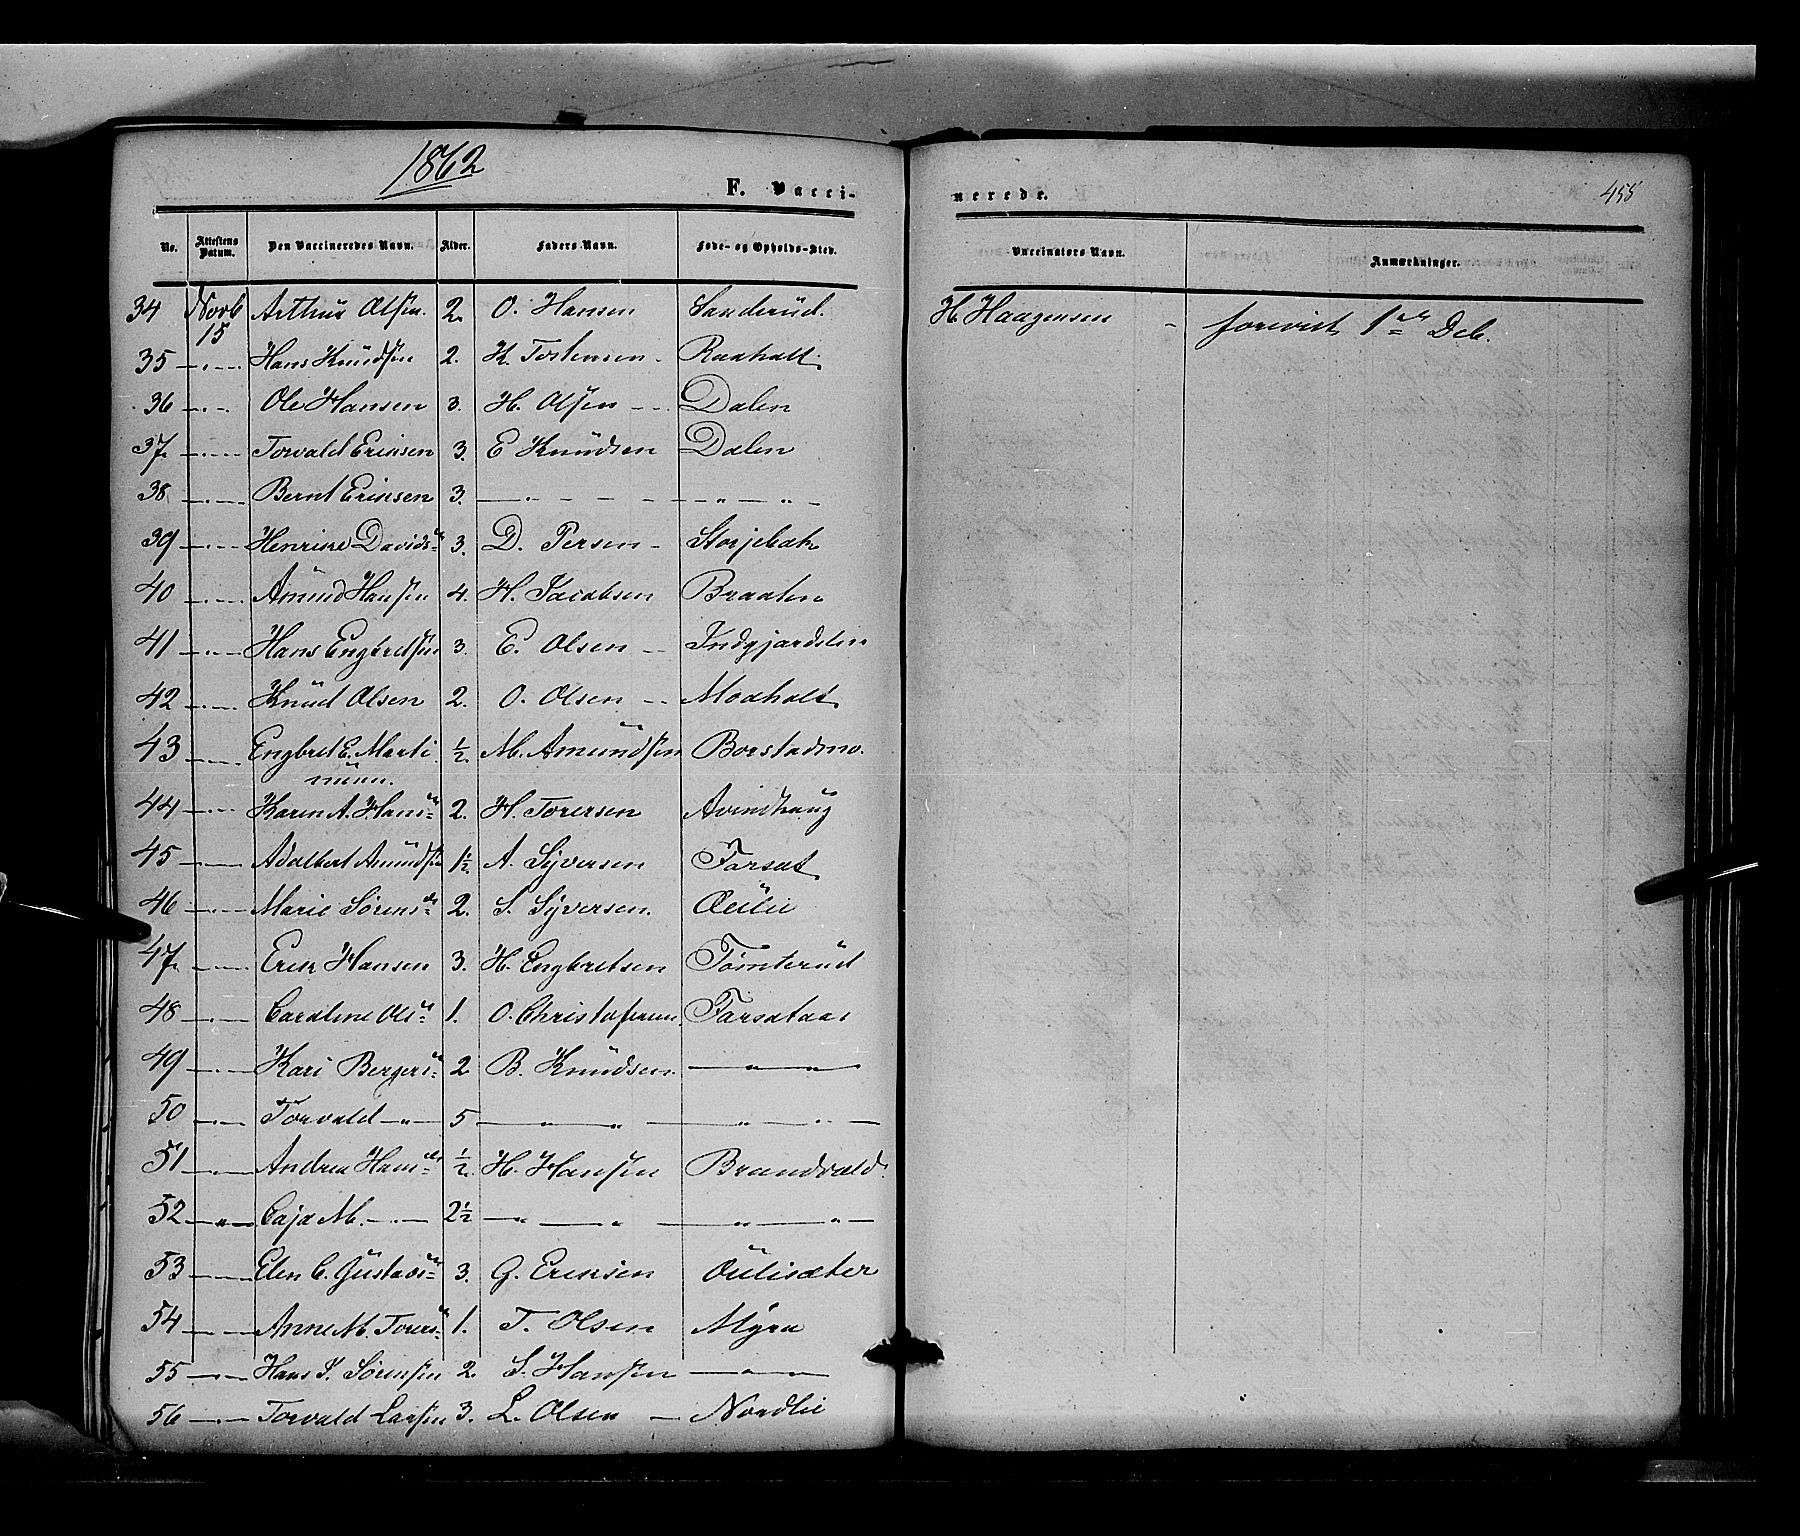 1862
F. Vacci-
nerede.
455
No. Attestens Datum. Den Vaccineredes Navn. Alder. Faders Navn. Føde- og Opholds-Sted. Vaccinators Navn. Anmærkninger.
34 Novb 15 Arthur Olsen. 2. O. Hansen Sanderud. H. Haagensen - forevist 1ste Deb.
35 —"— Hans Knudsen 2. K. Tostensen - Raaholt.
36 —"— Ole Hansen 3. H. Olsen -- Dalen
37 —"— Torvald Eriksen 3. E Knudsen Dalen
38 —"— Bernt Eriksen 3. —"— — — — " — " —
39 —"— Henrine Davidsdr 3. D. Persen - Storjebak
40 —"— Amund Hansen 4. H. Jacobsen Braaten
41 —"— Hans Engbretsen 3. E. Olsen -- Indgjardslen
42 —"— Knud Olsen 2. O. Olsen -- Moaholt
43 —— Engbret E. Marti
nusen. ½. M. Amundsen Borstadmo.
44 —"— Karen A. Hansdr 2. H. Toresen Avindhaug
45 —— Adalbert Amundsen 1½. A. Syversen Farsat
46 —"— Marie Sørensdr 2. S. Syversen. Oulie
47 —"— Erik Hansen 3. H. Engbretsen Tømterud
48 —"— Caroline Olsdr 1. O. Christofersen. Farsataas
49 —"— Kari Bergersdr 2 B. Knudsen. —"—"—
50 —"— Torvald —"— 5 —"—"— —"—"—
51 —"— Andrea Hansdr ½. H. Hansen Brandvold.
52 —"— Caja M. —"— 2½ —"—"— —"—"—
53 —"— Elen C. Gustavsdr 3. G. Eriksen Oulisæter
54 —"— Anne M. Toresdr 1. T. Olsen Myra
55 —"— Hans S. Sørensen 2. S. Hansen —"—"—
56 —"— Torvald Larsen 3. L. Olsen — Nordlie